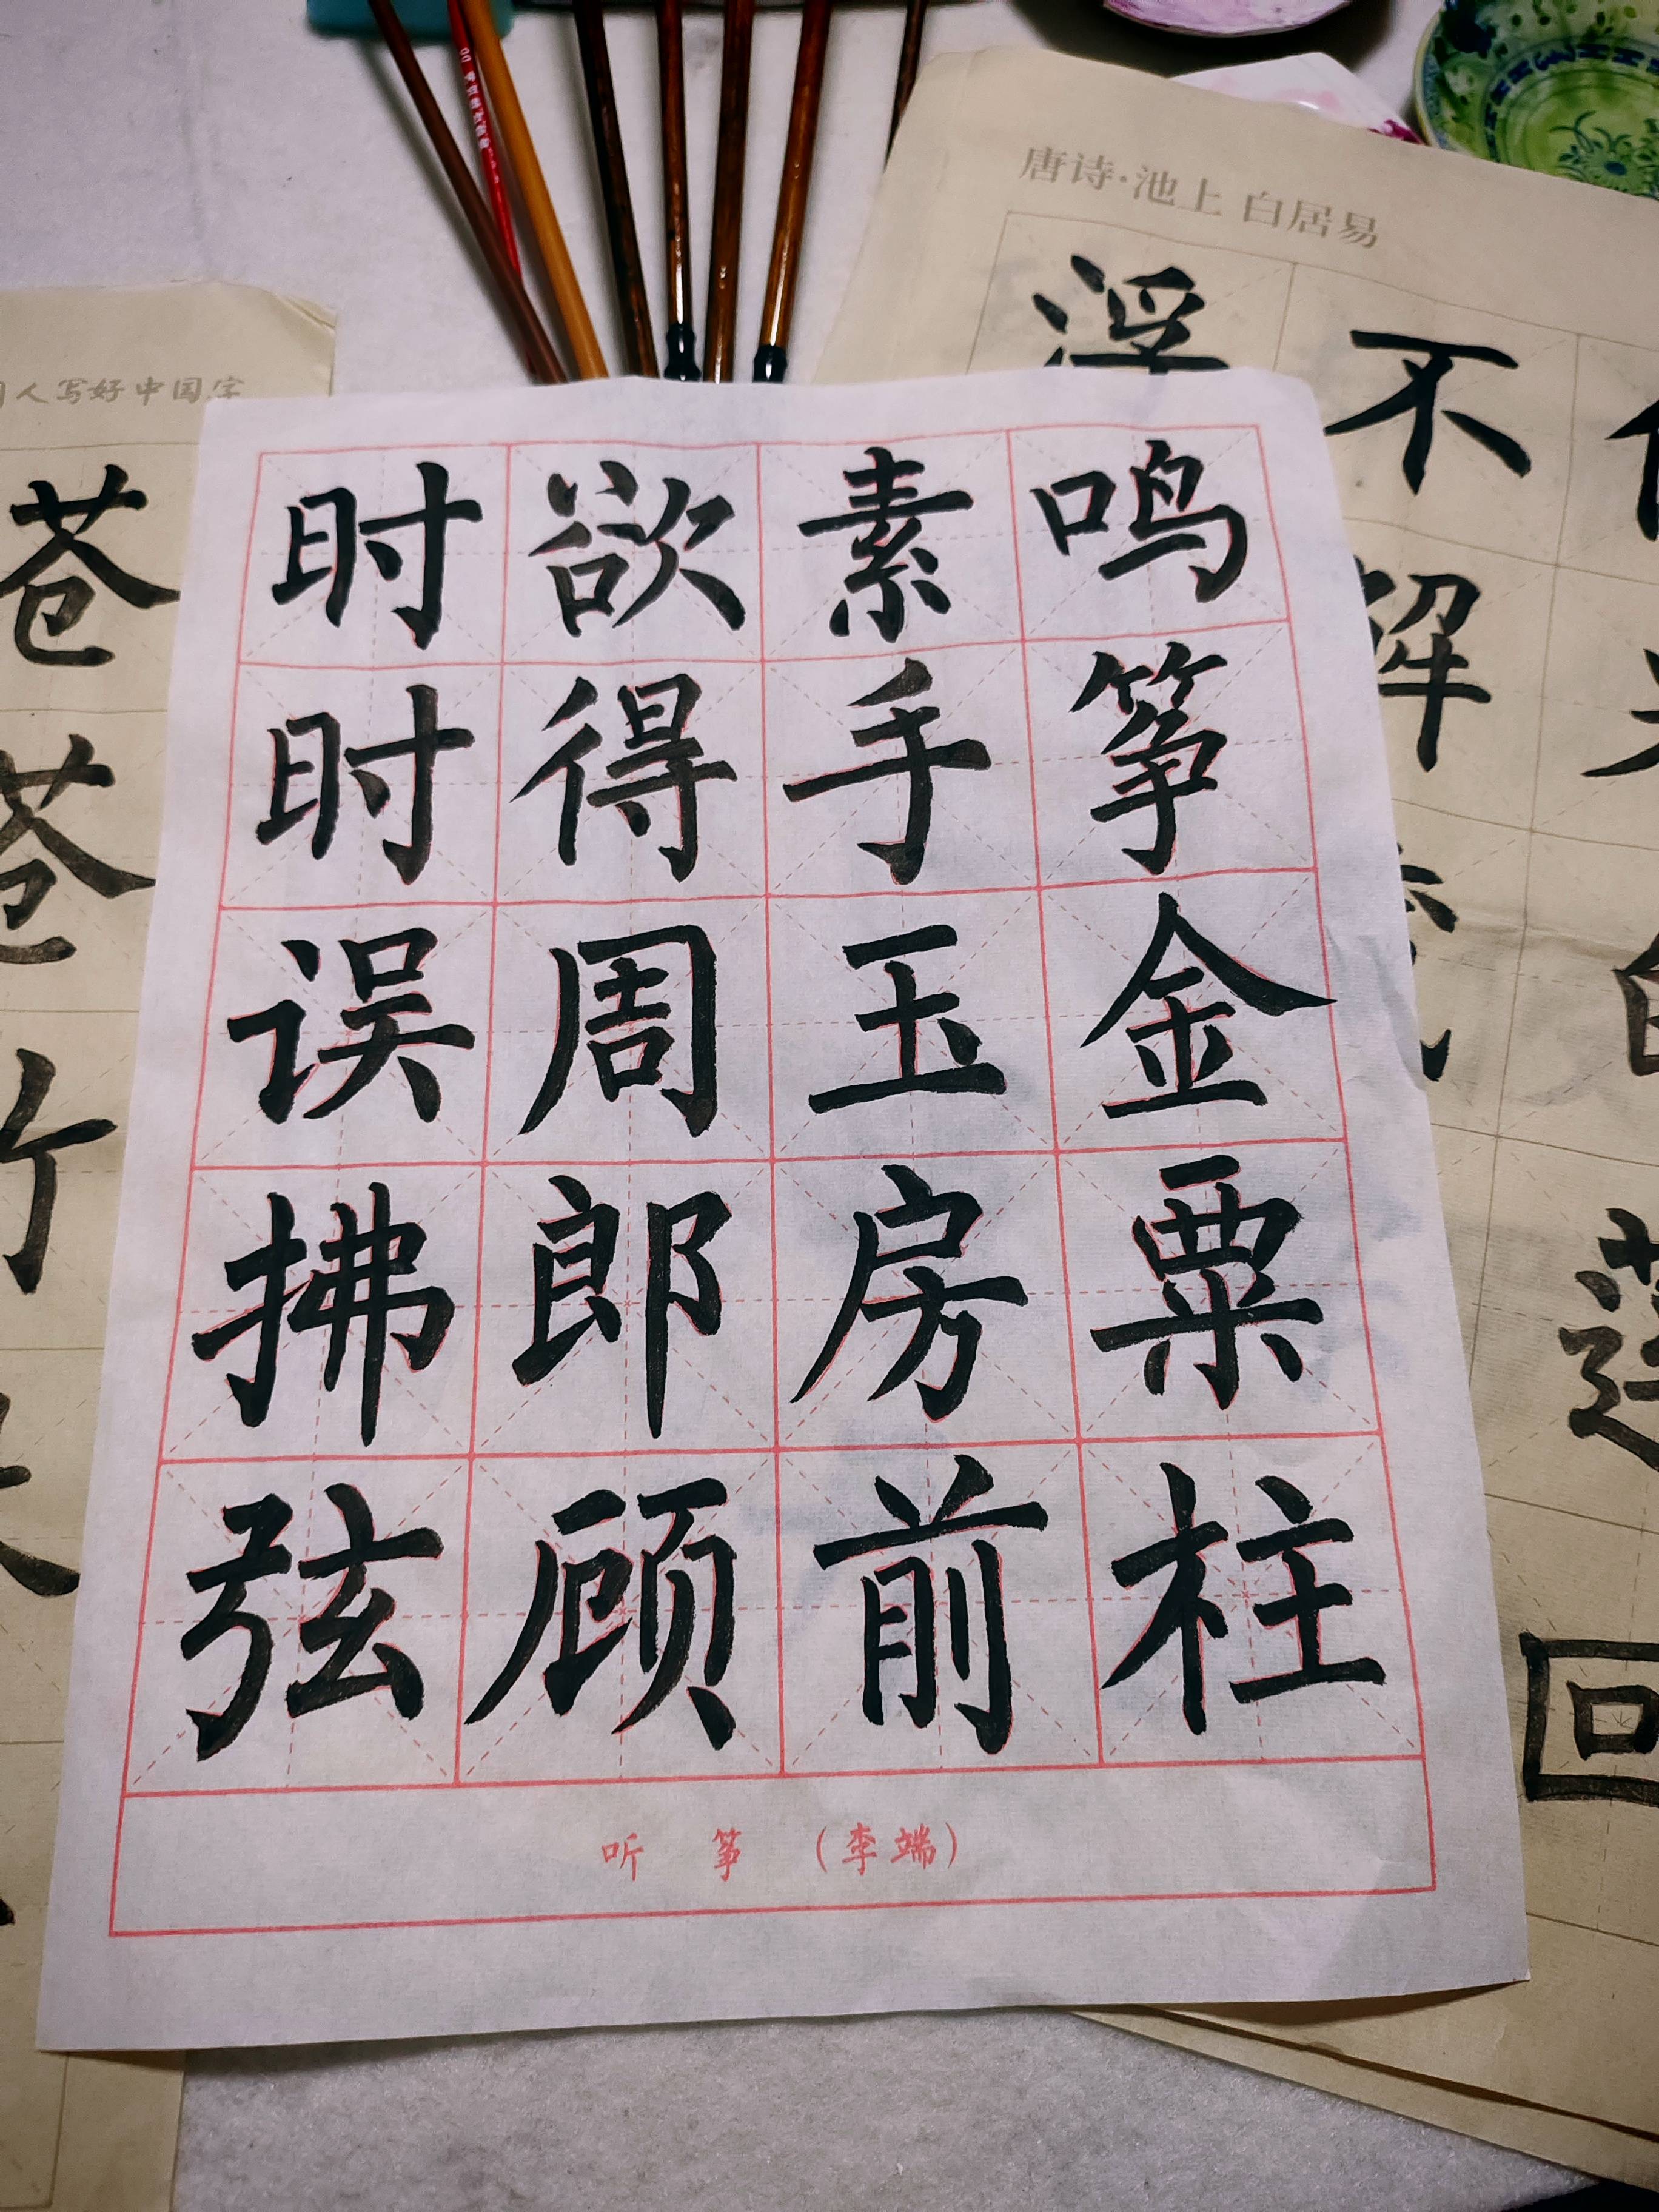 鸣筝金粟柱
素手玉房前
欲得周郎顾
时时误拂弦
听筝（李端）
唐诗·池上 白居易
不解
浮
回
人写好中国字
苍苍竹